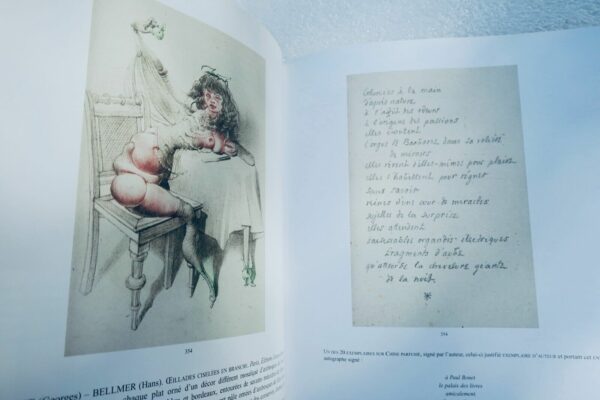 354
(Georges) – BELLMER (Hans). ŒILLADES CISELÉES EN BRANCHE. Paris, Éditions
chaque plat orné d'un décor différent mosaïqué
et bordeaux, entourées de
Coloriées à la main
d'après nature
à l'origine des passions
elles inventent
Corps de Baudoin dans sa volière
de miroirs
elles rêvent d'elles-mêmes pour plaire
elles s'habillent pour régner
sans savoir
reines d'une cour de miracles
de la surprise
elles attendent
organdis électriques
fragments d'aube
la chevelure géante
de la nuit
354
UN DES 20 EXEMPLAIRES SUR CHINE PARFUMÉ, signé par l'auteur, celui-ci justifié EXEMPLAIRE D'AUTEUR et portant cet
autographe signé :
à Paul Bonet
le palais des livres
amicalement,